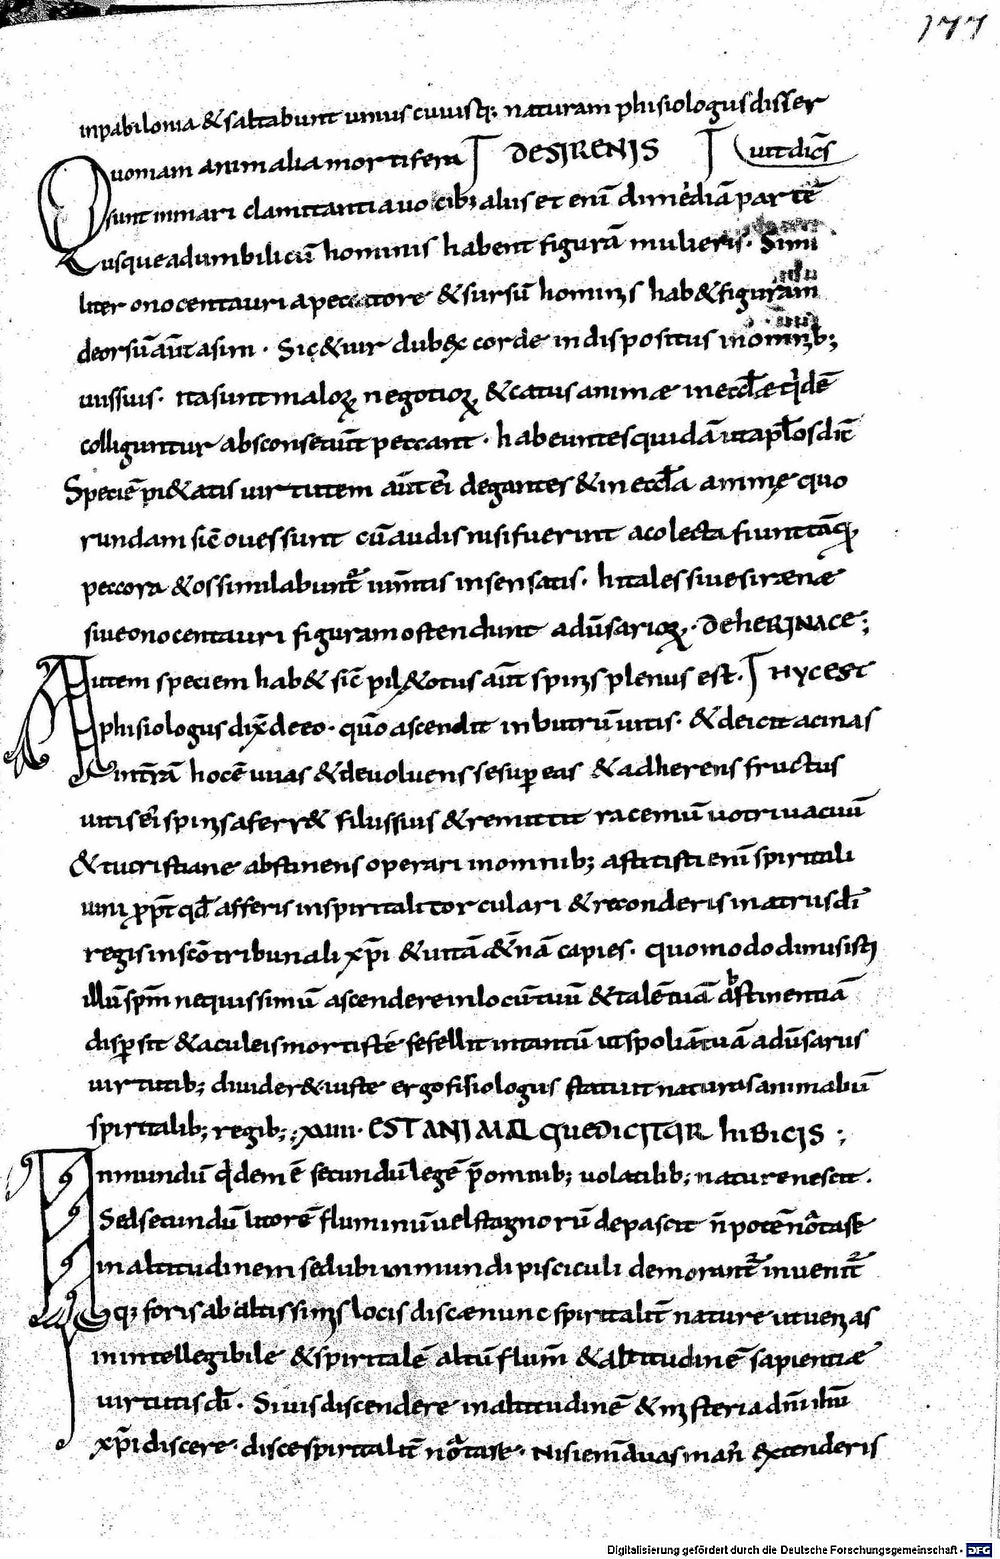 177
inpabilonia & saltabunt unius cuiusq; naturam phisiologus disser
uoniam animalia mortifera DE SIRENIS uit dicēs
Q sunt in mari clamitantia uocib; aliis et eni dimediā partē
usque ad umbilicū hominis habent figurā mulieris. Simi
liter onocentauri a pectore & sursū hominis hab& figuram
deorsū aūt asini. Sic & uir dubex corde indispositus inomnib;
uiis suis. ita sunt maloꝝ negotioꝝ & catus animæ in eccłæ qidē
colliguntur absconse uūt peccant. habentes quidā ut apłos dic̄
Speciē pi&atis uirtutem aūt ei degantes & in eccła anime quo
rundam sic̄ oues sunt cū audis nisi fuerint acolecta fiunt tāq
peccora & ossimilabunt iumtis insensatis. hi tales siue sirænæ
siue onocentauri figuram ostendunt adūsarioꝝ. DE HERINACE;
Autem speciem hab& sic̄ pil& otus aūt spinis plenus est. HYCEST
phisiologus dix̄ de eo. quo ascendit in butrū uitis. & deicit acinas
in trā hocē uuas & deuoluens se sup eas & adherens fructus
uitis ei spinis aferr& filiis suis & remittit racemū uotri uacuū
& tu cristiane abstinens operari in omnib; astitisti eni spiritali
uini ppt qd afferis in spiritali torculari & reconderis in atriis dī
regis in scō tribunali xpi & uitā &nā capies. quomodo dimisisti
illū spm nequissimū ascendere in locū tuū & talē tuā abstinentiā
dispsit & aculeis mortiste fefellit in tantū ut spoliā tuā adūsariis
uirtutib; diuider& iuste ergo fisiologus statuit naturas animabū
spiritalib; regib;: xuiiii. EST ANIMAL QUE DICITUR HIBICIS;
Inmundū qdem ē secundū legē p̄ omnib; uolatilib; nature nescit.
Sed secundū litorē fluminū uel stagnorū depascit n̄ potē notase
in altitudinem sed ubi inmundi pisciculi demorant inuenit
q; foris ab altissimis locis discæ nunc spiritalit nature ut ueniās
in intellegibile & spiritalē altū flum̄ & altitudinē sapientiæ
uirtutis dī. Si uis discendere in altitudinē & misteria dni ihu
xpi discere. disce spiritalit notase. Nisi enim duas man extenderis
Digitalisierung gefördert durch die Deutsche Forschungsgemeinschaft - DFG